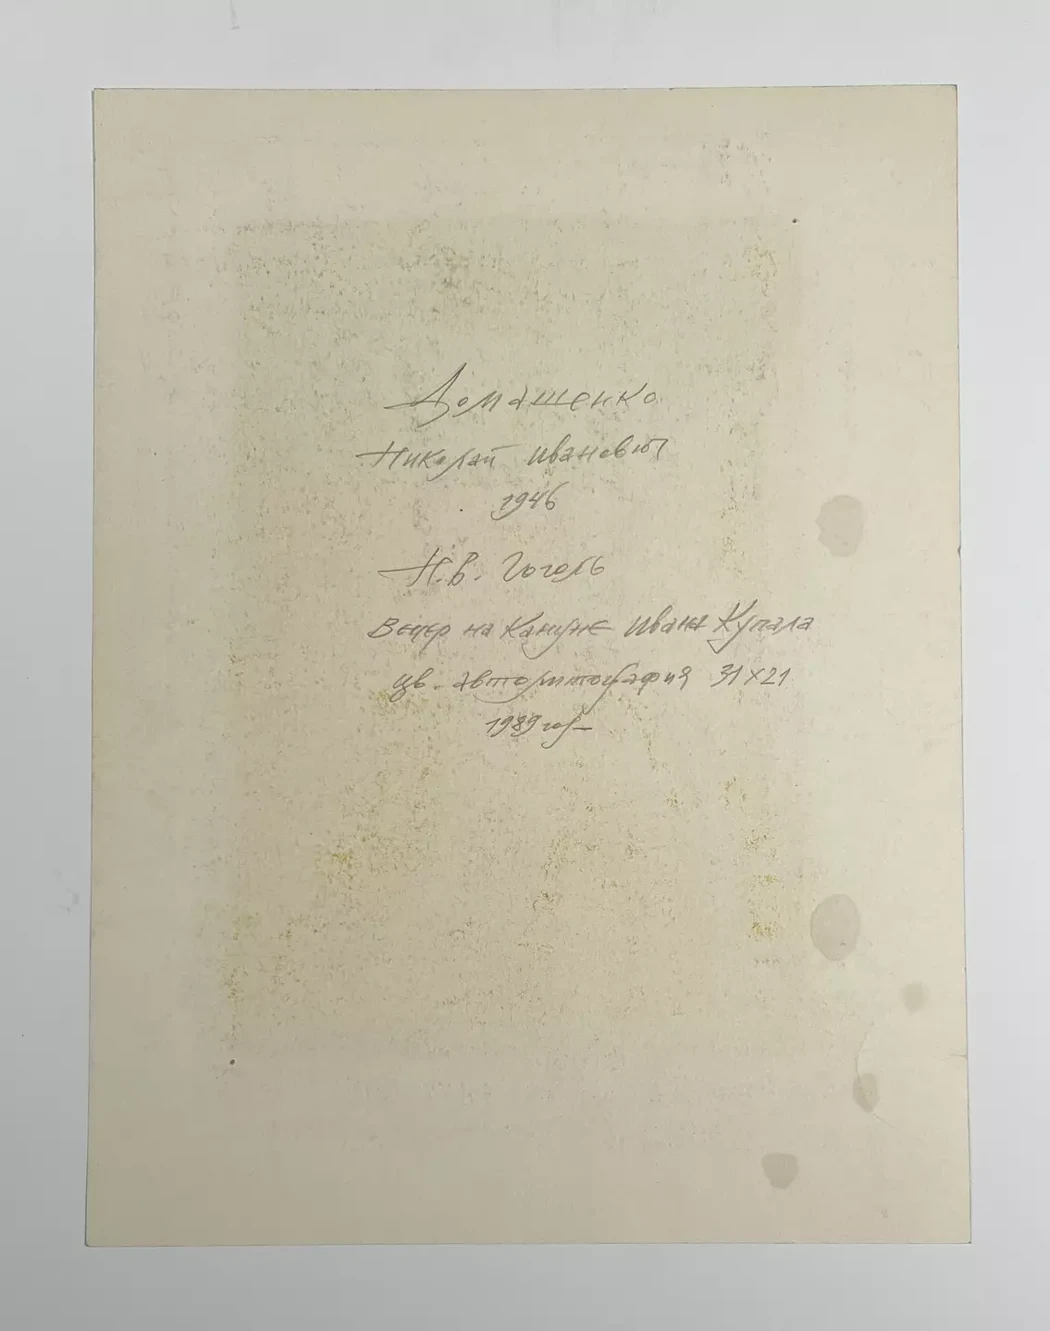 Домашенко
Николай Иванович
1946
Н.В. Гоголь
Вечер на Кануне Ивана Купала
цв. автолитография 31×21
1989 год